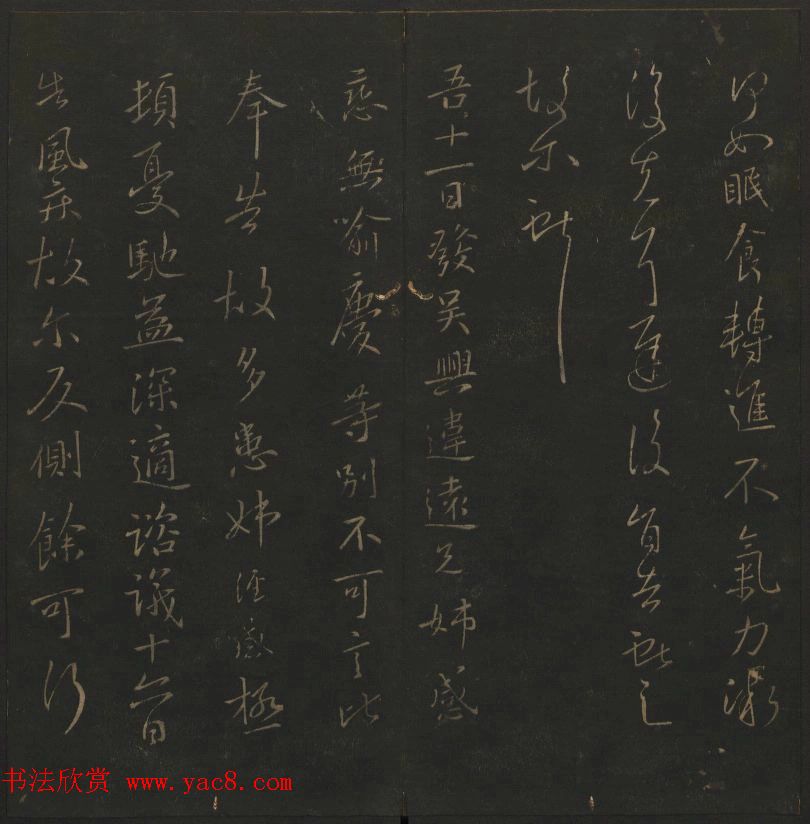 如眠食轉進不氣力漸
復
故尔
吾十一日發吳興違遠兄姊感
慈無喻慶等別不可言比
奉告故多患姊經感極
頓憂馳益深適諮議十六日
告風疾故尔反側餘可行
书法欣赏 www.yac8.com